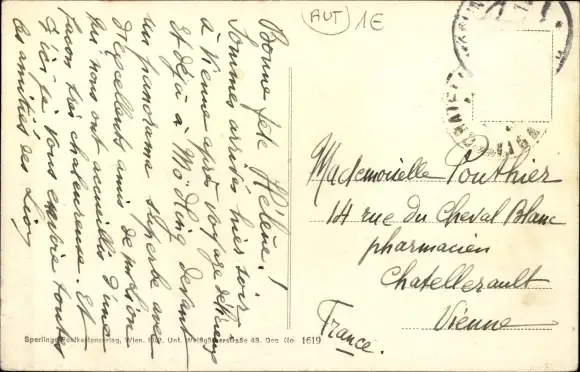 AUT 1E
Bonne fête Hélène !
Sommes arrivés hier soir
à Vienne après voyage
Et déjà à Mödling devant
un panorama superbe avec
d'excellents amis de
qui nous ont accueillis d'une
façon très chaleureuse. Et
d'ici je vous envoie toutes
les amitiés des
Mademoiselle Pouthier
14 rue du Cheval Blanc
pharmacien
Chatellerault
Vienne
France.
Sperlings Postkartenverlag, Wien, Unt. Weißgärberstraße 43. Ges No. 1619